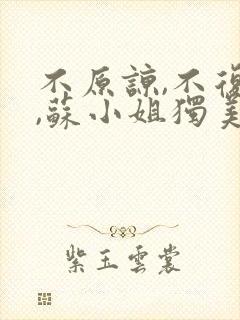 不原諒,不復
,蘇小姐獨美
紫玉雲裳